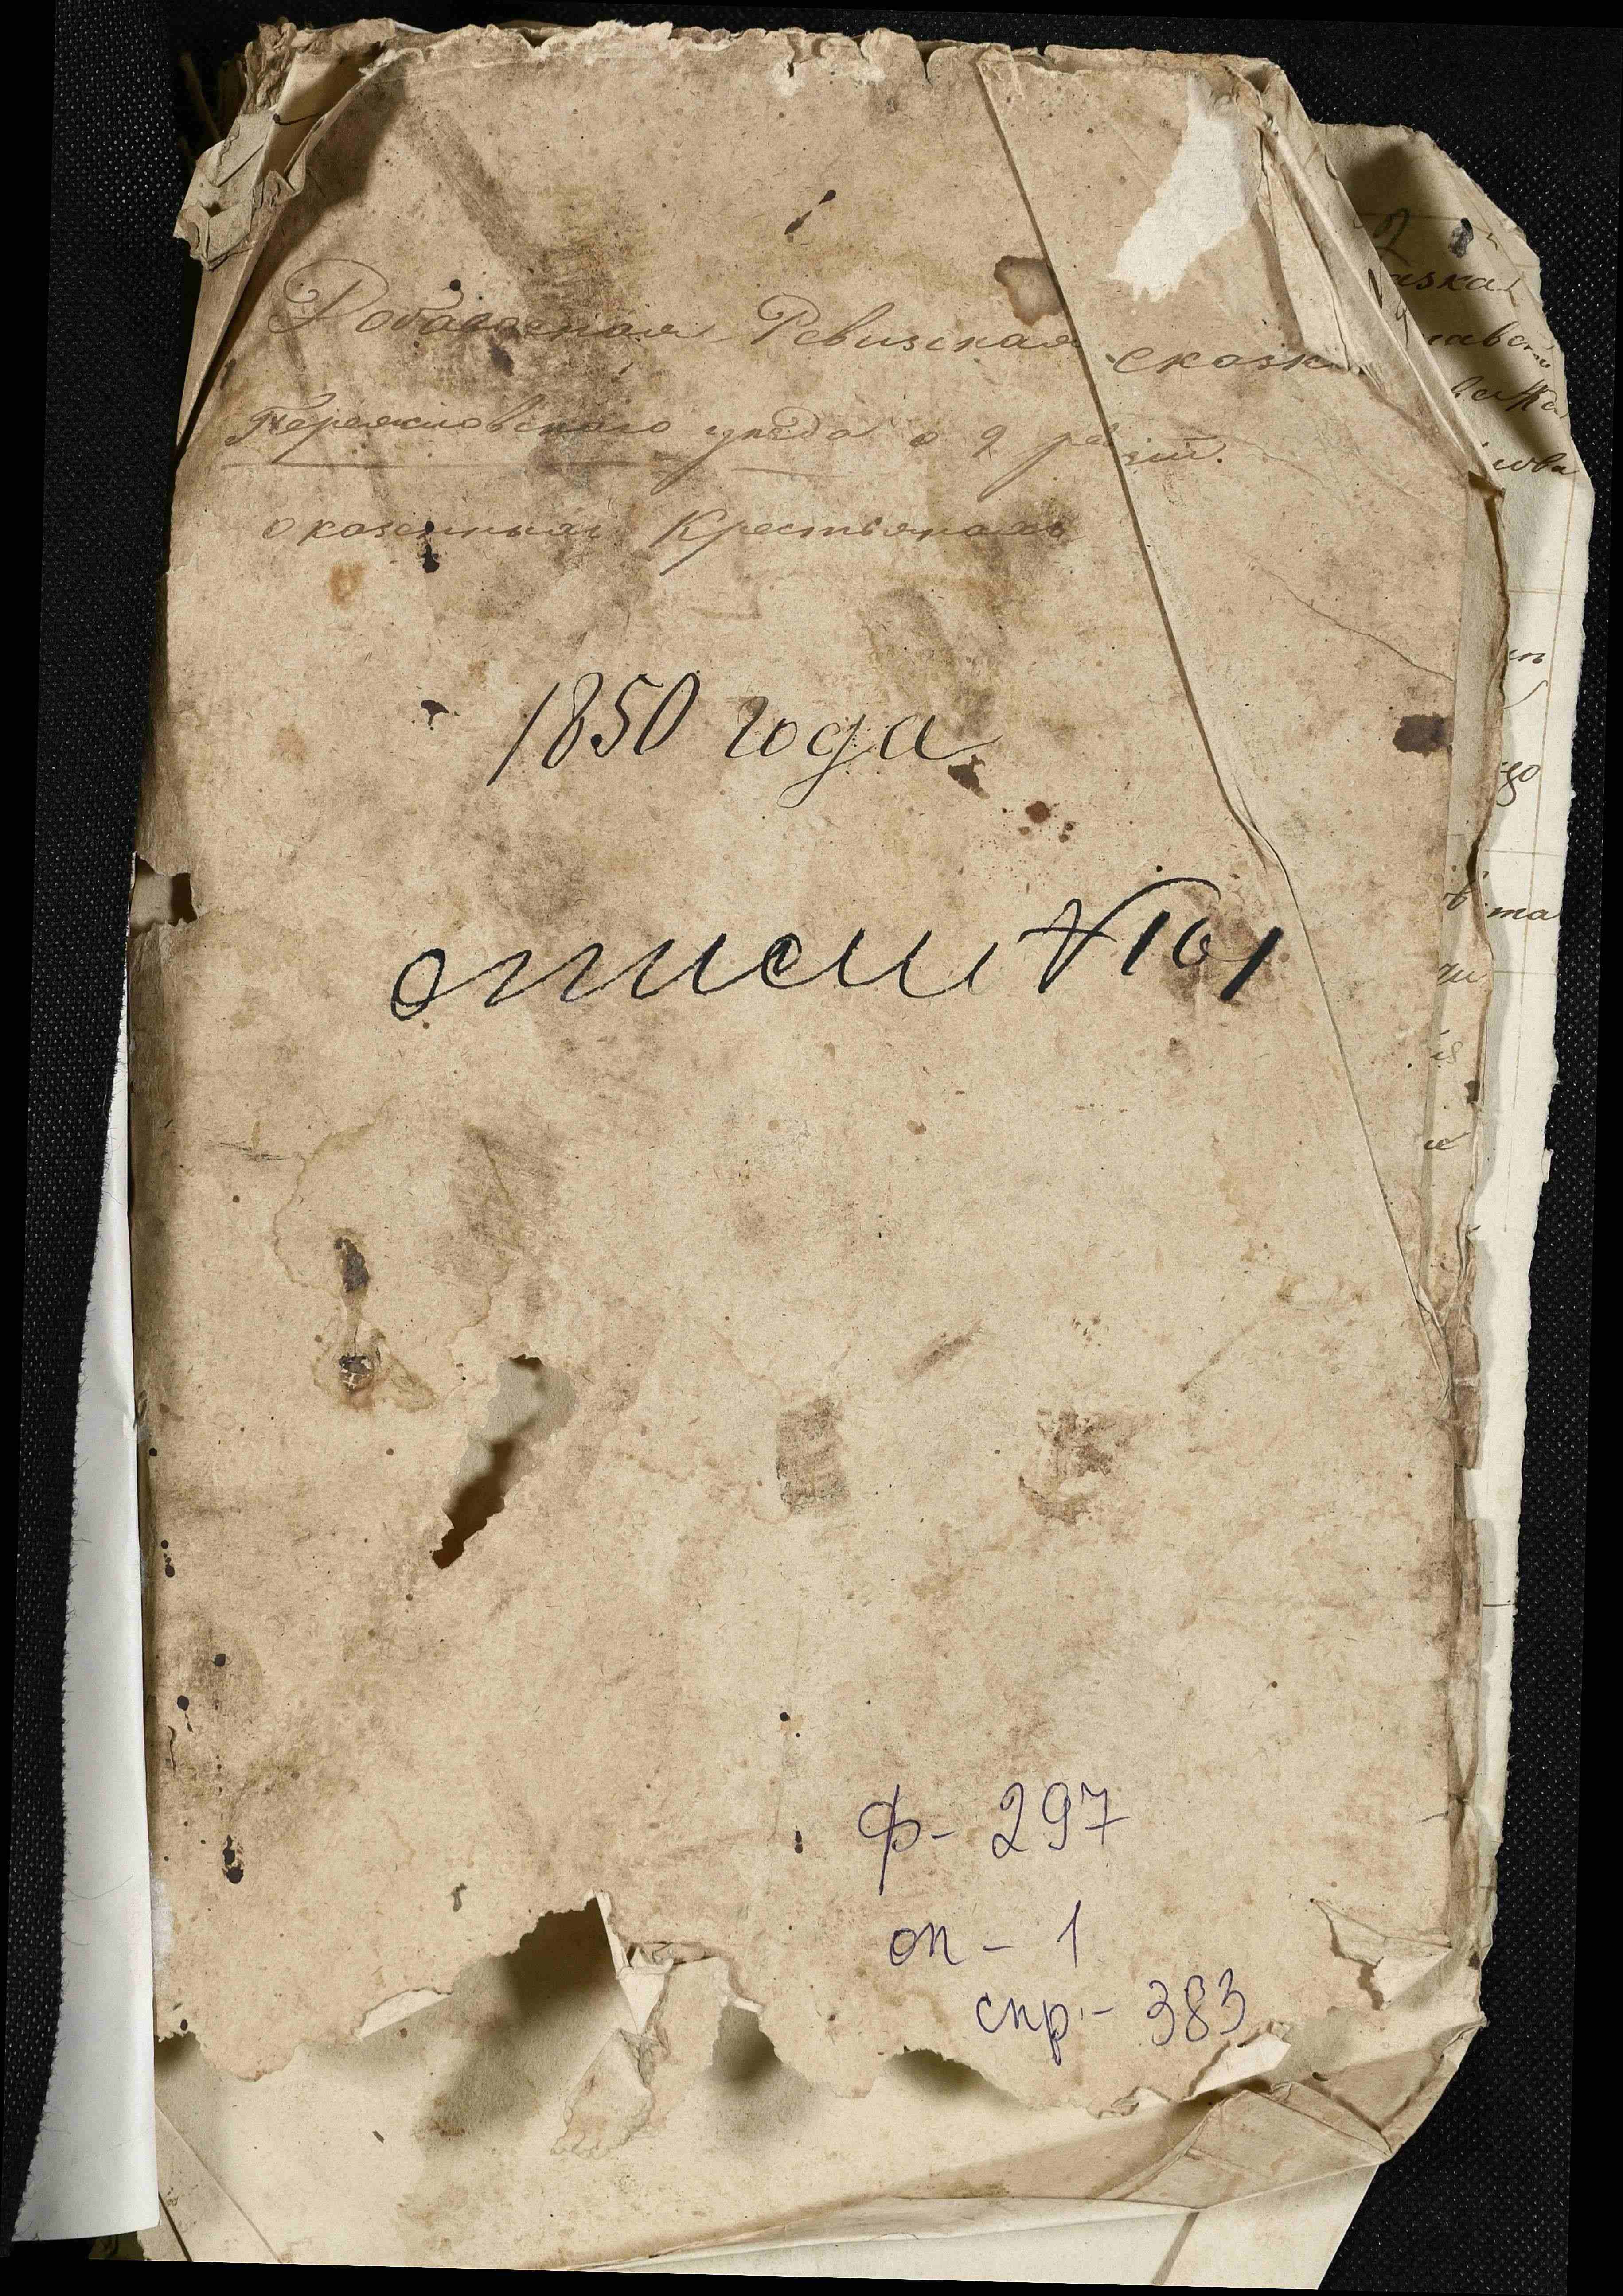 Добавочная Ревизская сказк
Переяславского уезда о 9 ревизіи.
о казенныхъ Крестьянахъ
1850 года
описи №101
ф- 297
оп- 1
спр- 383
азка
го
та